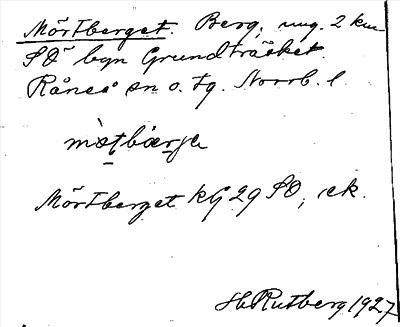 Mörtberget. Berg, ung. 2 km
SO byn Grundträsket.
Råneå sn o. tg. Norrb. l.
mø̀tbærjə
Mörtberget kG 29 SO, ek.
H Rutberg 1927